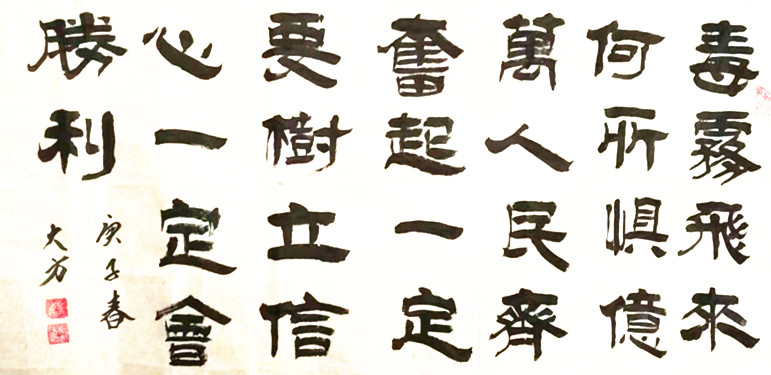 毒霧飛來
何所懼億
萬人民齊
奮起一定
要樹立信
心一定會
勝利
庚子春
大方